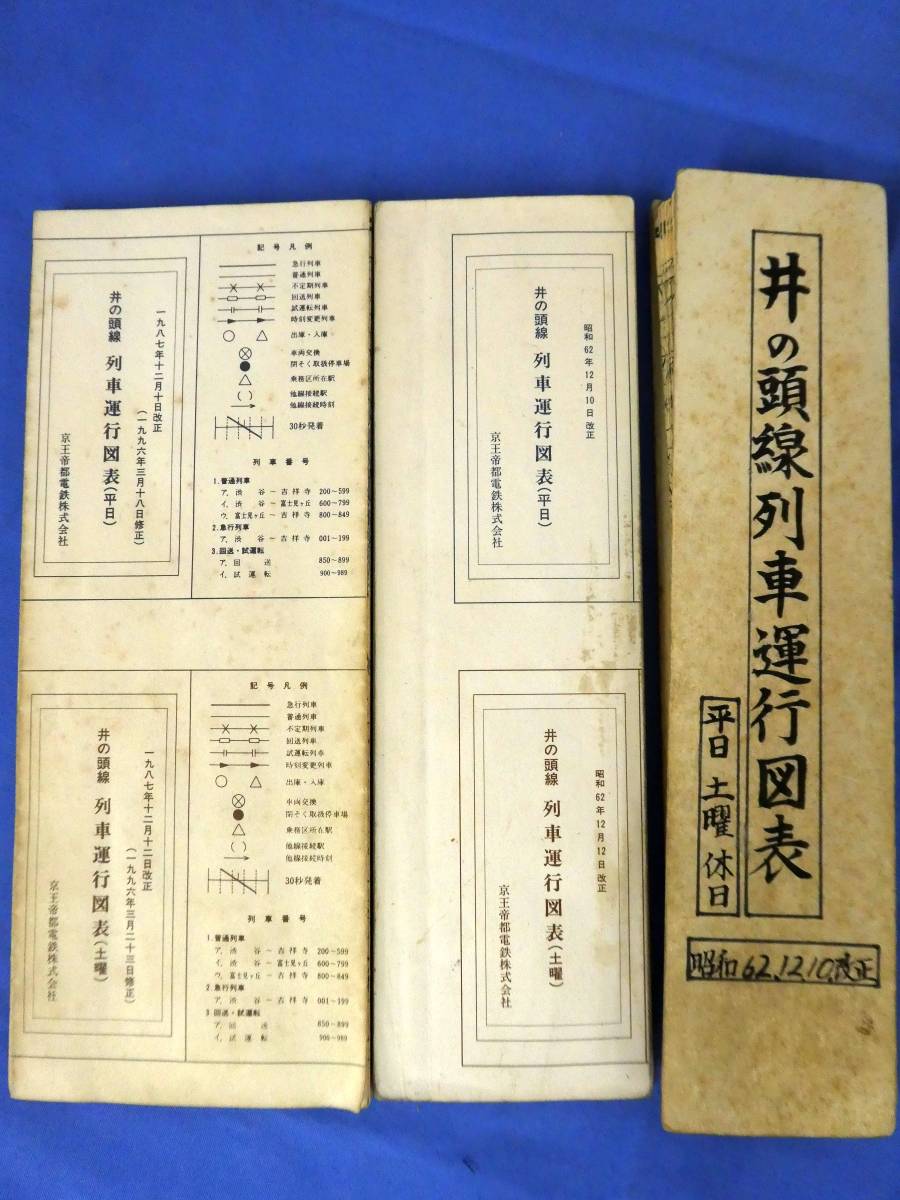 井の頭線列車運行図表
平日 土曜 休日
昭和62.12.10.改正
昭和62年12月10日改正
井の頭線 列車運行図表(平日)
京王帝都電鉄株式会社
昭和62年12月12日改正
井の頭線 列車運行図表(土曜)
京王帝都電鉄株式会社
記号凡例
急行列車
普通列車
不定期列車
回送列車
試運転列車
時刻変更列車
出庫・入庫
車両交換
閉そく取扱停車場
乗務区所在駅
( ) 他線接続駅
他線接続時刻
30秒発着
列車番号
1.普通列車
ア.渋谷~吉祥寺 200~599
イ.渋谷~富士見ヶ丘 600~799
ウ.富士見ヶ丘~吉祥寺 800~849
2.急行列車
ア.渋谷~吉祥寺 001~199
3.回送・試運転
ア.回送 850~899
イ.試運転 900~989
一九八七年十二月十日改正
(一九九六年三月十八日修正)
井の頭線 列車運行図表(平日)
京王帝都電鉄株式会社
記号凡例
急行列車
普通列車
不定期列車
回送列車
試運転列車
時刻変更列車
出庫・入庫
車両交換
閉そく取扱停車場
乗務区所在駅
( ) 他線接続駅
他線接続時刻
30秒発着
列車番号
1.普通列車
ア.渋谷~吉祥寺 200~599
イ.渋谷~富士見ヶ丘 600~799
ウ.富士見ヶ丘~吉祥寺 800~849
2.急行列車
ア.渋谷~吉祥寺 001~199
3.回送・試運転
ア.回送 850~899
イ.試運転 900~989
一九八七年十二月十二日改正
(一九九六年三月二十三日修正)
井の頭線 列車運行図表(土曜)
京王帝都電鉄株式会社